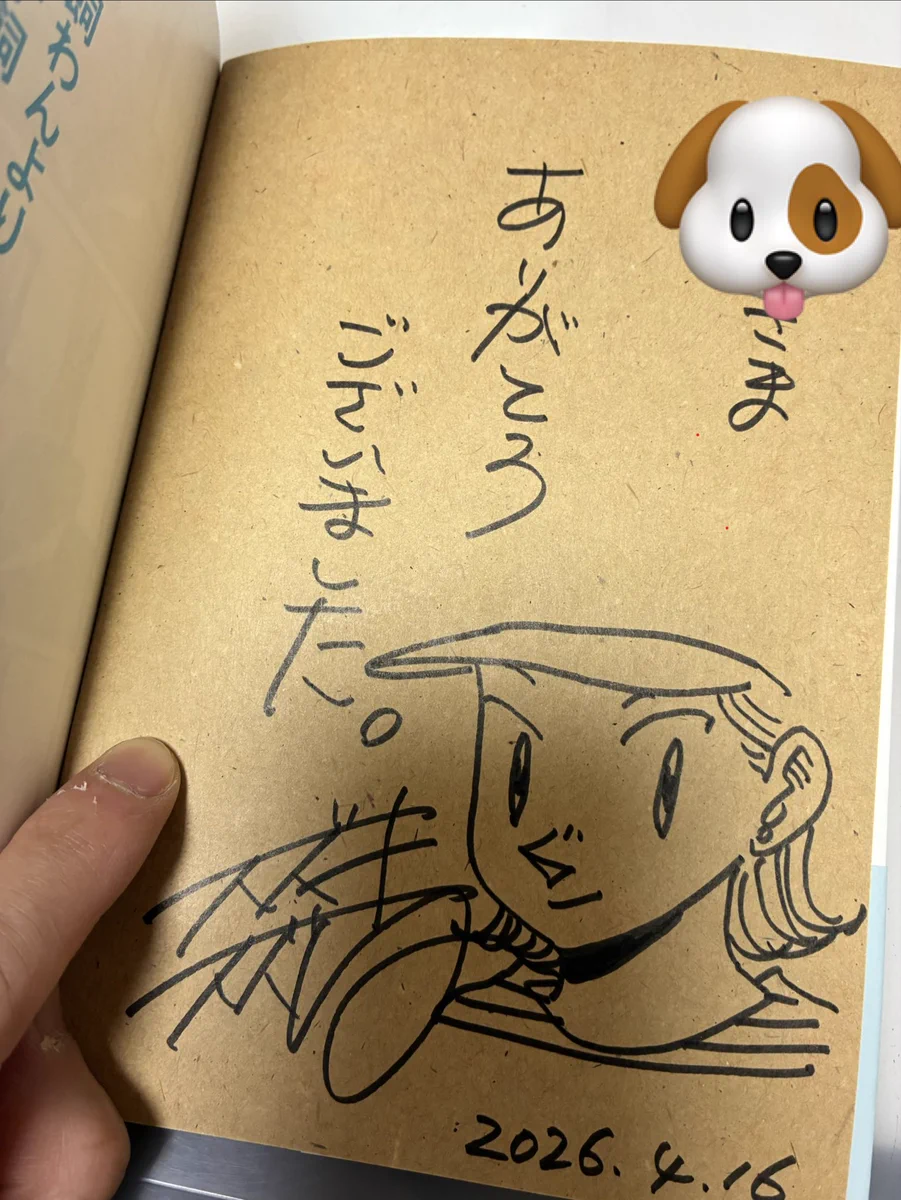 さま
ありがとう
ございました。
2026.4.16